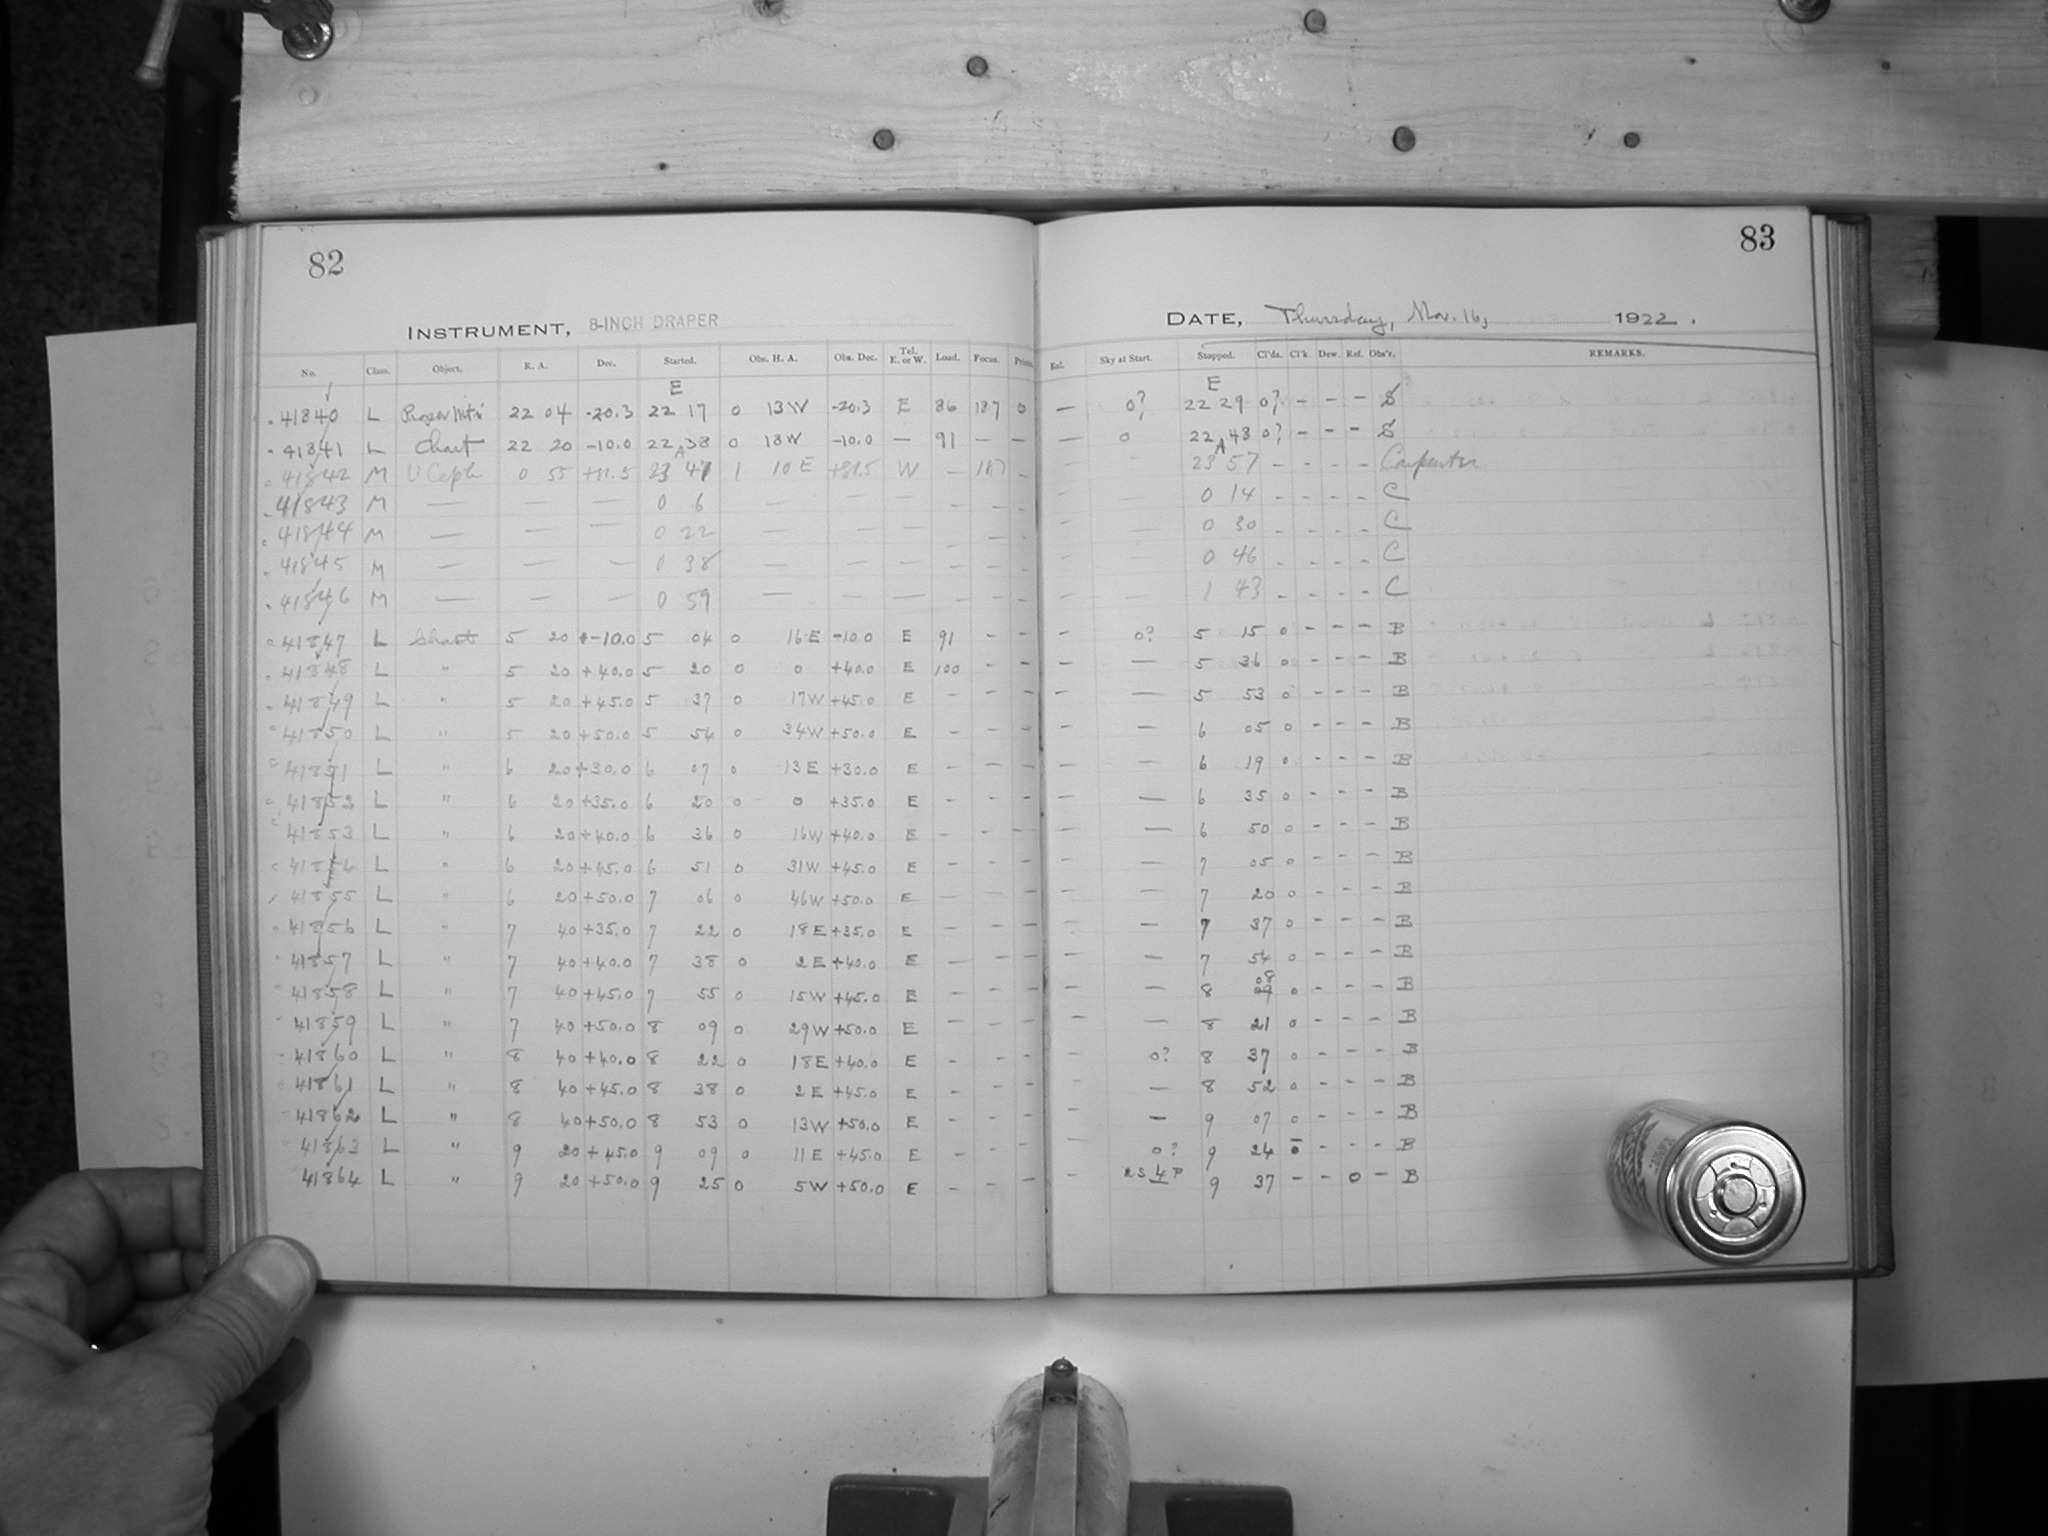 82
INSTRUMENT, 8-INCH DRAPER
No. Class. Object. R. A. Dec. Started. Obs. H. A. Obs. Dec. Tel. E. or W. Load. Focus. Prism.
E
41840 L 22 04 -20.3 22 17 0 13W -20.3 E 86 187 0
41841 L Chart 22 20 -10.0 22 38 0 18W -10.0 — 91 — —
A
41842 M U Ceph 0 55 +81.5 23 47 1 10 E +81.5 W — 187
41843 M — — — 0 6 — — — - -
41844 M — — — 0 22 — — — - -
41845 M — — — 0 38 — — — - -
41846 M — — — 0 59 — — — - -
41847 L Chart 5 20 -10.0 5 04 0 16E -10.0 E 91 - -
41848 L " 5 20 +40.0 5 20 0 0 +40.0 E 100 - -
41849 L " 5 20 +45.0 5 37 0 17W +45.0 E - - -
41850 L " 5 20 +50.0 5 54 0 34W +50.0 E - - -
41851 L " 6 20 +30.0 6 07 0 13E +30.0 E - - -
41852 L " 6 20 +35.0 6 20 0 0 +35.0 E - - -
41853 L " 6 20 +40.0 6 36 0 16W +40.0 E - - -
41854 L " 6 20 +45.0 6 51 0 31W +45.0 E - - -
41855 L " 6 20 +50.0 7 06 0 46W +50.0 E - - -
41856 L " 7 40 +35.0 7 22 0 18E +35.0 E - - -
41857 L " 7 40 +40.0 7 38 0 2E +40.0 E - - -
41858 L " 7 40 +45.0 7 55 0 15W +45.0 E - - -
41859 L " 7 40 +50.0 8 09 0 29W +50.0 E - - -
41860 L " 8 40 +40.0 8 22 0 18E +40.0 E - - -
41861 L " 8 40 +45.0 8 38 0 2E +45.0 E - - -
41862 L " 8 40 +50.0 8 53 0 13W +50.0 E - - -
41863 L " 9 20 +45.0 9 09 0 11E +45.0 E - - -
41864 L " 9 20 +50.0 9 25 0 5W +50.0 E - - -
83
DATE, Thursday, Nov. 16, 1922.
Enl. Sky at Start. Stopped. Cl'ds. Cl'k Dew. Ref. Obs'r. REMARKS.
E
— 0? 22 29 0? - - - S
— 0 22 48 0? - - - S
A
- - 23 57 - - - - Carpenter
- - 0 14 - - - - C
- - 0 30 - - - - C
- - 0 46 - - - - C
- - 1 43 - - - - C
- 0? 5 15 0 - - - B
- — 5 36 0 - - - B
- — 5 53 0 - - - B
- — 6 05 0 - - - B
- — 6 19 0 - - - B
- — 6 35 0 - - - B
- — 6 50 0 - - - B
- — 7 05 0 - - - B
- — 7 20 0 - - - B
- — 7 37 0 - - - B
- — 7 54 0 - - - B
- — 8 08 0 - - - B
- — 8 21 0 - - - B
- 0? 8 37 0 - - - B
- — 8 52 0 - - - B
- — 9 07 0 - - - B
- 0? 9 24 0 - - - B
- 9 37 - - 0 - B